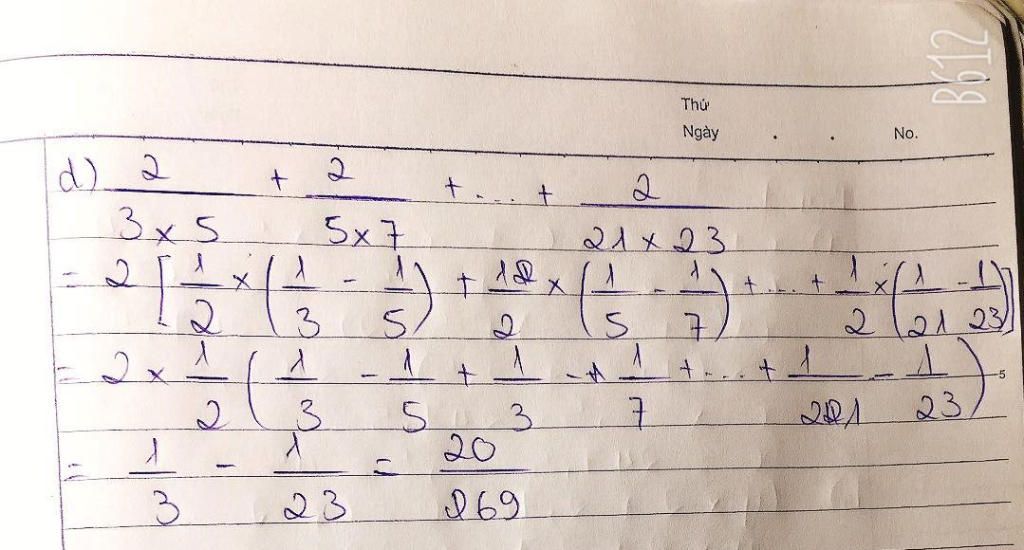 B612
Thứ
Ngày . . No.
d) 2/(3 x 5) + 2/(5 x 7) + ... + 2/(21 x 23)
= 2 [1/2 x (1/3 - 1/5) + 1/2 x (1/5 - 1/7) + ... + 1/2 x (1/21 - 1/23)]
= 2 x 1/2 (1/3 - 1/5 + 1/3 - 1/7 + ... + 1/21 - 1/23)
5
= 1/3 - 1/23 = 20/69